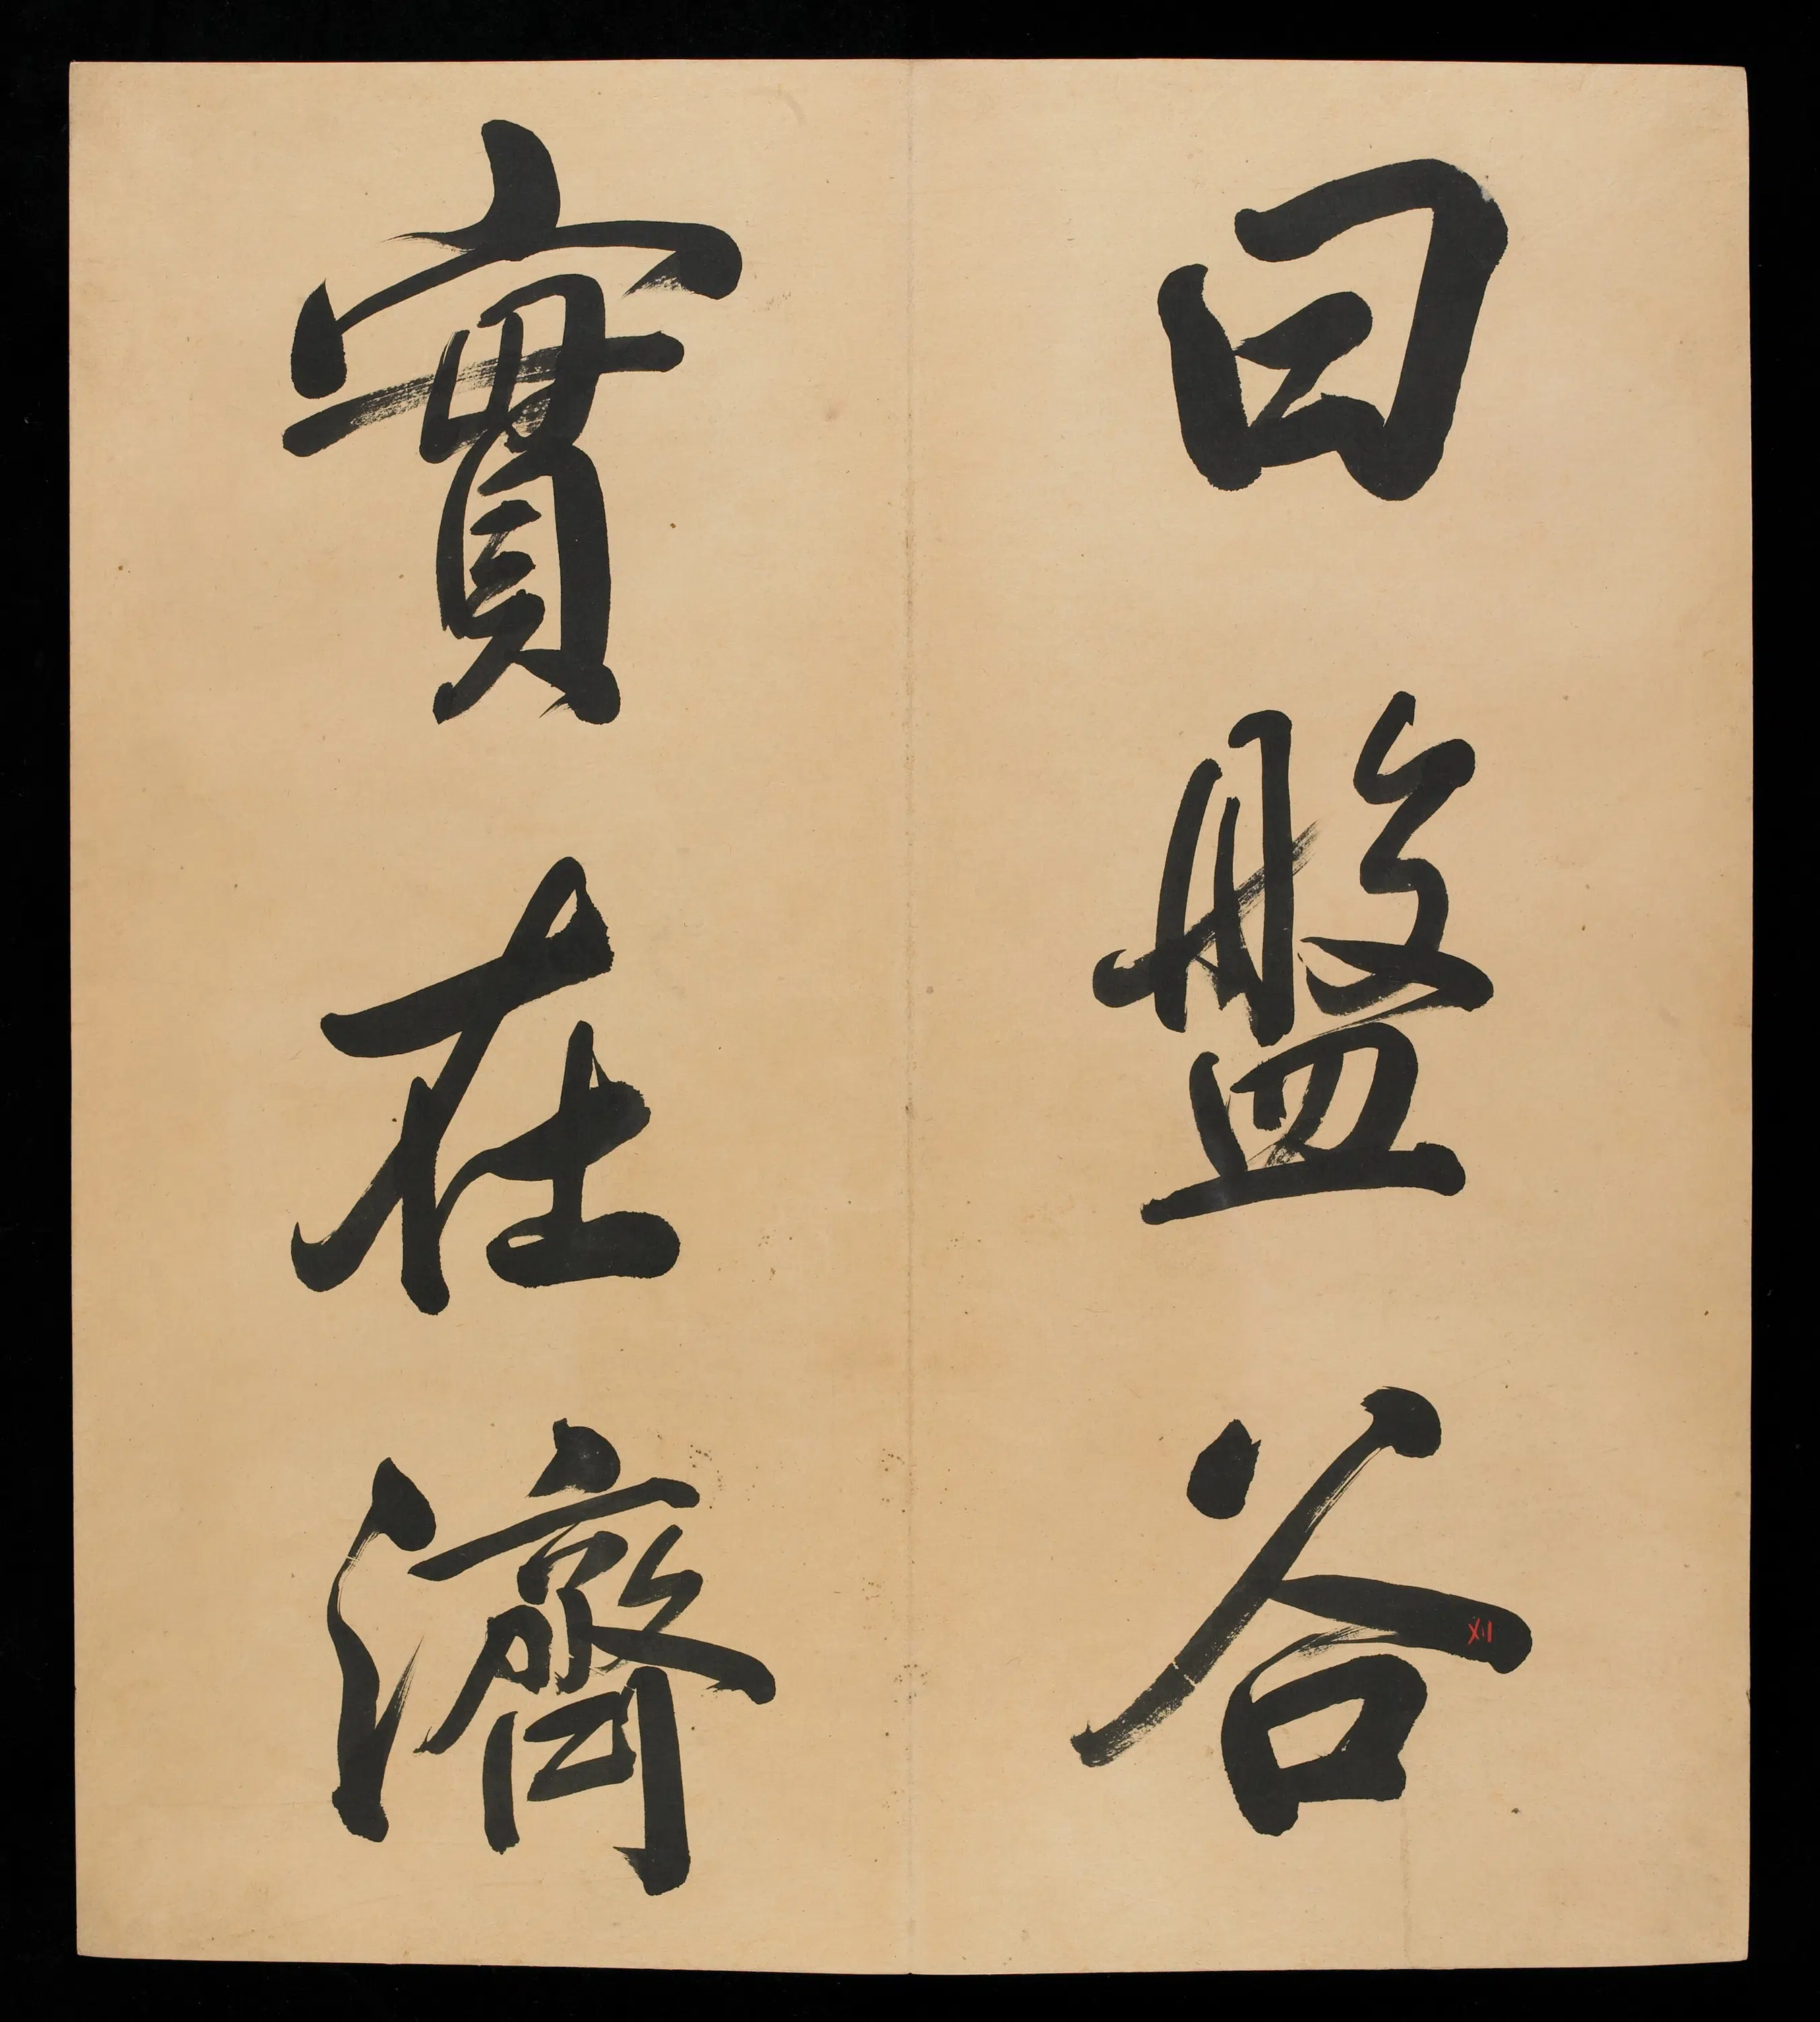 曰盤谷
實在濟
XII